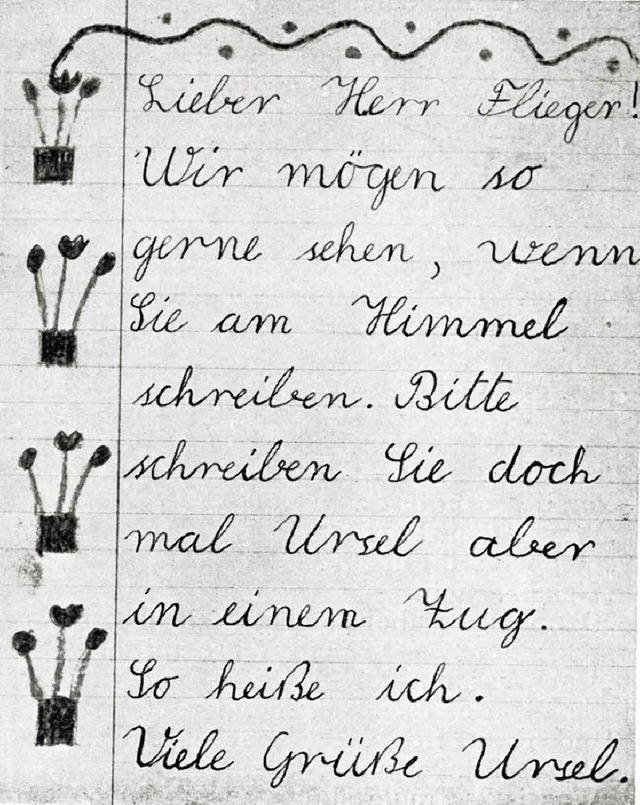 Lieber Herr Flieger!
Wir mögen so
gerne sehen, wenn
Sie am Himmel
schreiben. Bitte
schreiben Sie doch
mal Ursel aber
in einem Zug.
So heiße ich.
Viele Grüße Ursel.